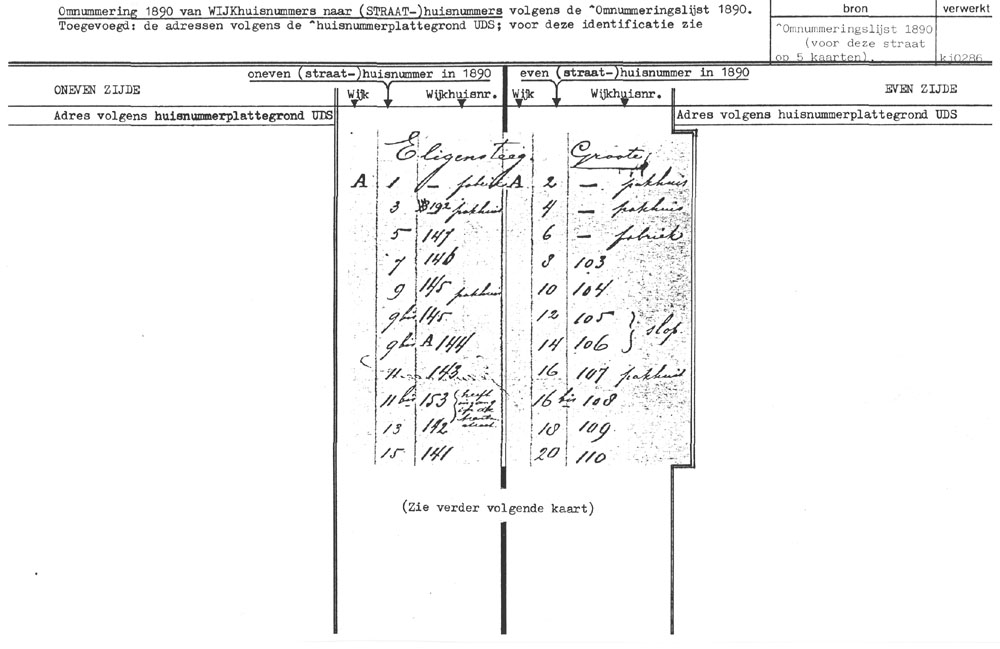 Omnummering 1890 van WIJKhuisnummers naar (STRAAT-)huisnummers volgens de ^Omnummeringslijst 1890.
Toegevoegd: de adressen volgens de ^huisnummerplattegrond UDS; voor deze identificatie zie
bron
verwerkt
^Omnummeringslijst 1890
(voor deze straat
op 5 kaarten).
kj0286
oneven (straat-)huisnummer in 1890
even (straat-)huisnummer in 1890
ONEVEN ZIJDE
Wijk
Wijkhuisnr.
Wijk
Wijkhuisnr.
EVEN ZIJDE
Adres volgens huisnummerplattegrond UDS
Adres volgens huisnummerplattegrond UDS
Eligensteeg. Groote
A 1 — fabriek A 2 — pakhuis
3 192 pakhuis 4 — pakhuis
5 147 6 — fabriek
7 146 8 103
9 145 pakhuis 10 104
9 bis 145 12 105
slop
9 bis A 144 14 106
11 143 16 107 pakhuis
11 bis 153 heeft ingang in de 16 bis 108
13 142 18 109
15 141 20 110
(Zie verder volgende kaart)